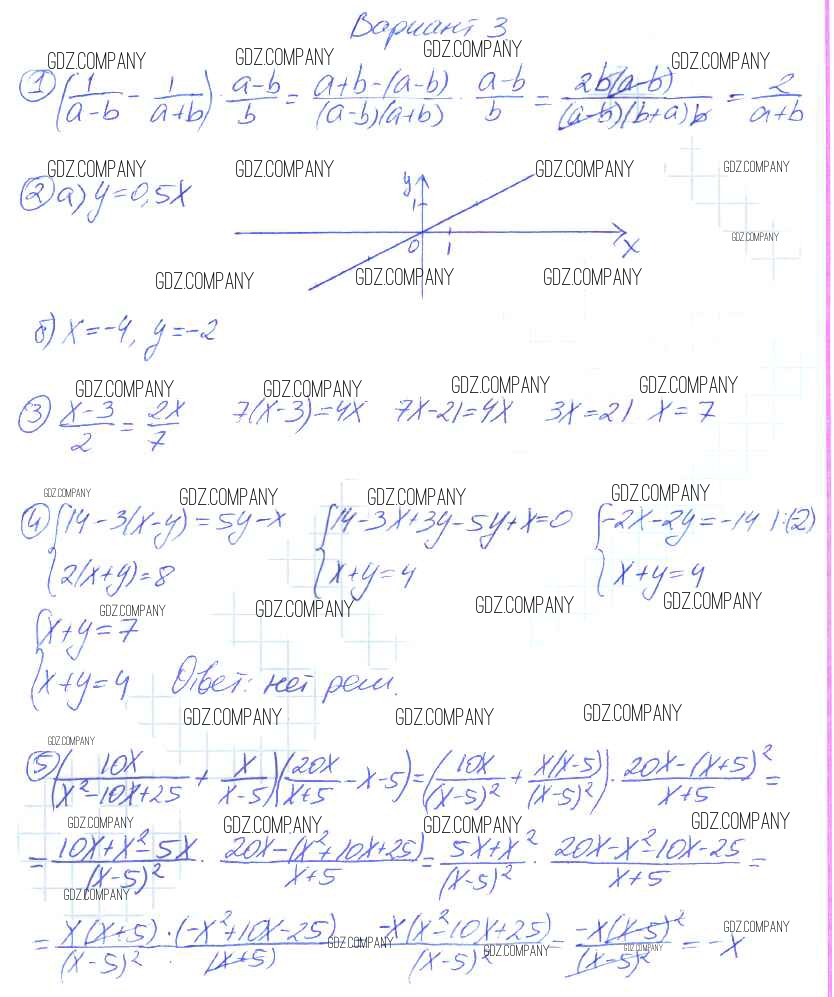 Вариант 3
GDZ.COMPANY GDZ.COMPANY GDZ.COMPANY GDZ.COMPANY
① (1/(a-b) - 1/(a+b)) · (a-b)/b = (a+b-(a-b))/((a-b)(a+b)) · (a-b)/b = 2b(a-b)/((a-b)(b+a)b) = 2/(a+b)
GDZ.COMPANY GDZ.COMPANY GDZ.COMPANY GDZ.COMPANY
② а) y=0,5x
y
1
0 1 x
GDZ.COMPANY
GDZ.COMPANY GDZ.COMPANY GDZ.COMPANY
б) x=-4, y=-2
GDZ.COMPANY GDZ.COMPANY GDZ.COMPANY GDZ.COMPANY
③ (x-3)/2 = 2x/7 7(x-3)=4x 7x-21=4x 3x=21 x=7
GDZ.COMPANY GDZ.COMPANY GDZ.COMPANY GDZ.COMPANY
④ { 14-3(x-y)=5y-x { 14-3x+3y-5y+x=0 { -2x-2y=-14 |:(2)
2(x+y)=8 x+y=4 x+y=4
GDZ.COMPANY GDZ.COMPANY GDZ.COMPANY GDZ.COMPANY
{ x+y=7
x+y=4 Ответ: нет реш.
GDZ.COMPANY GDZ.COMPANY GDZ.COMPANY
GDZ.COMPANY
⑤ (10x/(x²-10x+25) + x/(x-5))(20x/(x+5) - x-5) = (10x/(x-5)² + x(x-5)/(x-5)²) · (20x-(x+5)²)/(x+5) =
GDZ.COMPANY GDZ.COMPANY GDZ.COMPANY GDZ.COMPANY
= (10x+x²-5x)/(x-5)² · (20x-(x²+10x+25))/(x+5) = (5x+x²)/(x-5)² · (20x-x²-10x-25)/(x+5) =
GDZ.COMPANY
= x(x+5)·(-x²+10x-25)/((x-5)²·(x+5)) = -x(x²-10x+25)/(x-5)² = -x(x-5)²/(x-5)² = -x
GDZ.COMPANY GDZ.COMPANY GDZ.COMPANY GDZ.COMPANY